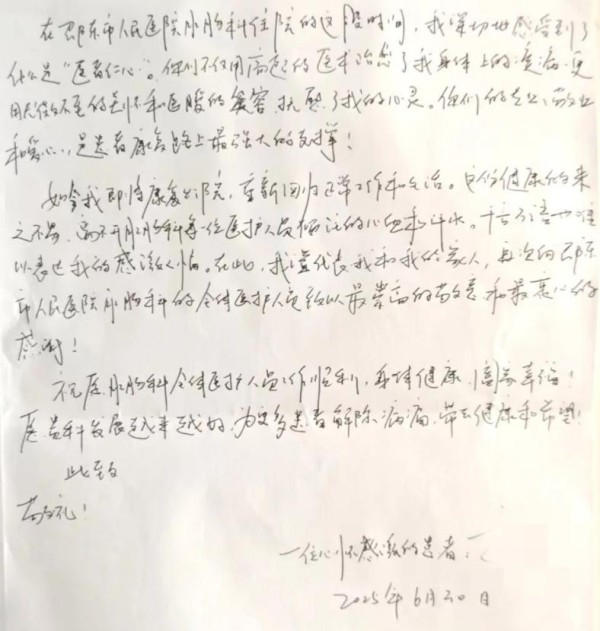 在邵东市人民医院肛肠科住院的这段时间，我深切地感受到了
什么是“医者仁心”。你们不仅用高超的医术治愈了我身体上的疾病，更
用无微不至的关怀和医服的笑容，抚慰了我的心灵。你们的专业、敬业
和爱心，是患者康复路上最强大的支撑！
如今我即将康复出院，重新回归正常工作和生活。这份健康的来
之不易，离不开肛肠科每一位医护人员倾注的心血和汗水。千言万语也难
以表达我的感激之情。在此，我谨代表我和我的家人，再次向邵东
市人民医院肛肠科的全体医护人员致以最崇高的敬意和最衷心的
感谢！
祝愿肛肠科全体医护人员工作顺利，身体健康，阖家幸福！
愿贵科发展越来越好，为更多患者解除病痛，带去健康和希望！
此致
敬礼！
一位心怀感激的患者
2025年6月30日